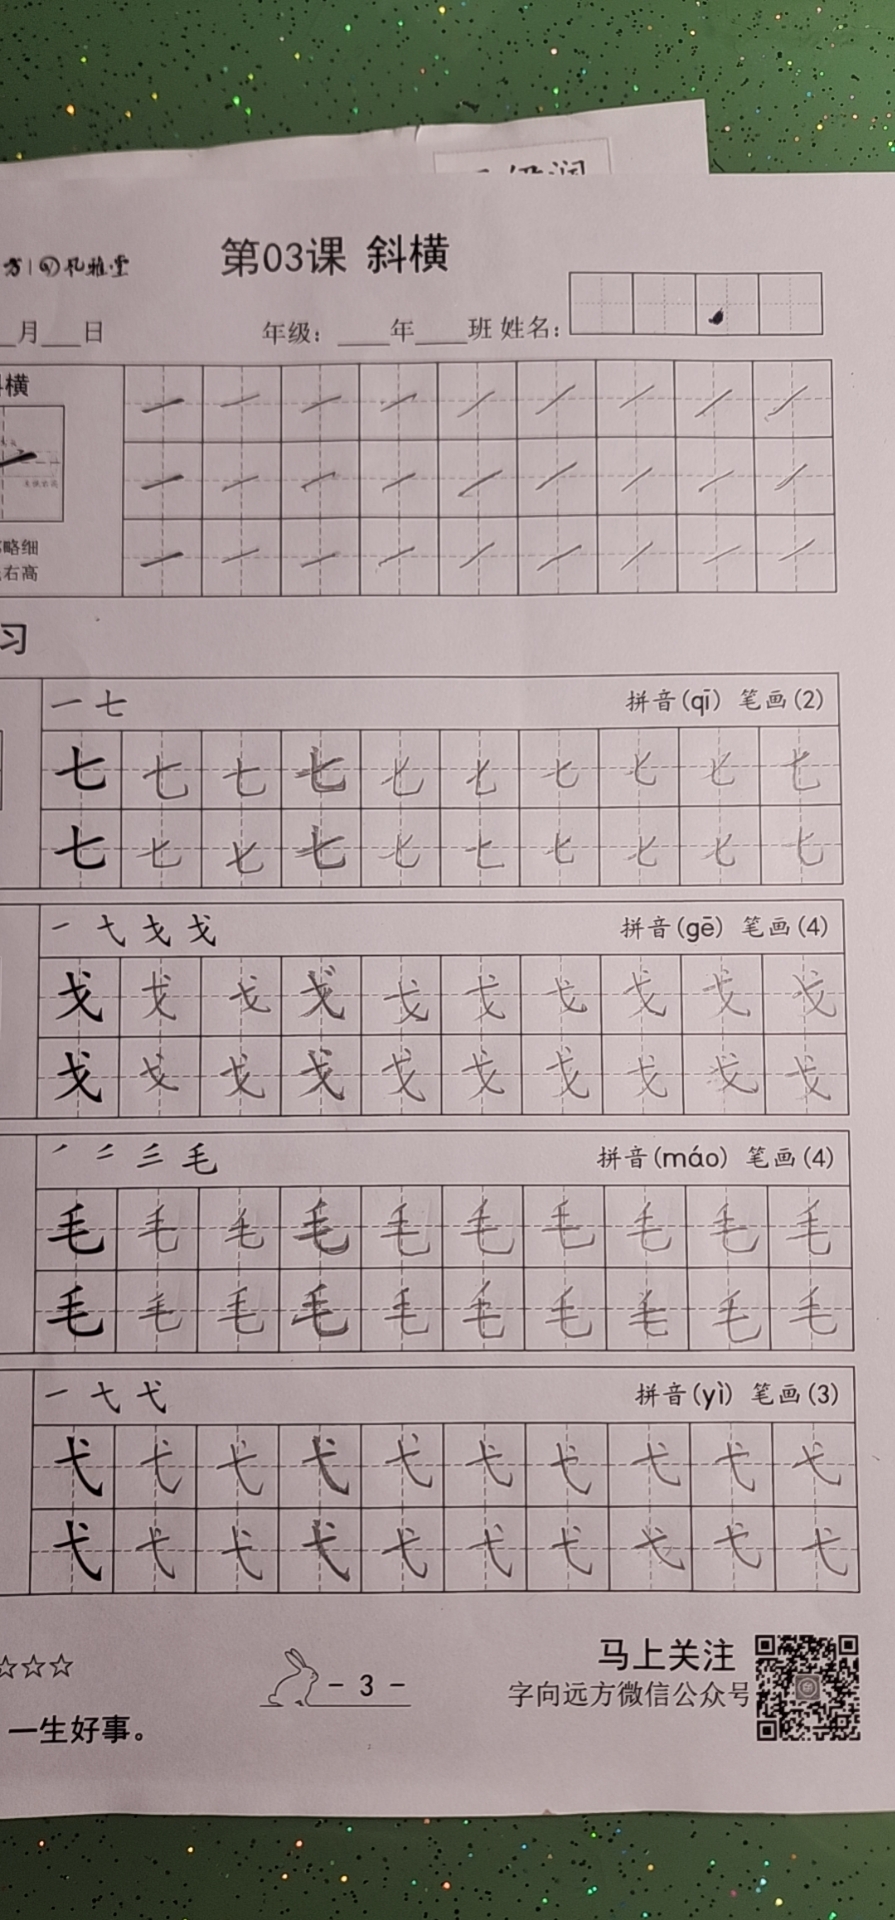 第03课 斜横
月 日 年级： 年 班 姓名：
横
略细
右高
习
一 七 拼音(qī) 笔画(2)
七 七 七 七 七 七 七 七 七 七
七 七 七 七 七 七 七 七 七 七
拼音(gē) 笔画(4)
戈 戈 戈 戈 戈 戈 戈 戈 戈 戈
戈 戈 戈 戈 戈 戈 戈 戈 戈 戈
毛 拼音(máo) 笔画(4)
毛 毛 毛 毛 毛 毛 毛 毛 毛 毛
毛 毛 毛 毛 毛 毛 毛 毛 毛 毛
一 弋 拼音(yì) 笔画(3)
弋 弋 弋 弋 弋 弋 弋 弋 弋 弋
弋 弋 弋 弋 弋 弋 弋 弋 弋 弋
☆☆☆
- 3 -
马上关注
字向远方微信公众号
一生好事。